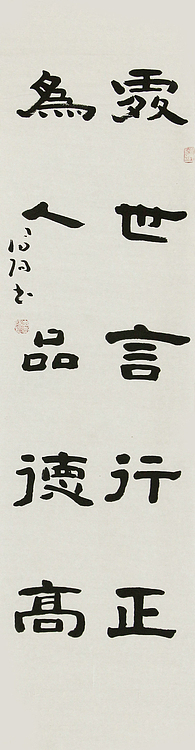 處世言行正
為人品德高